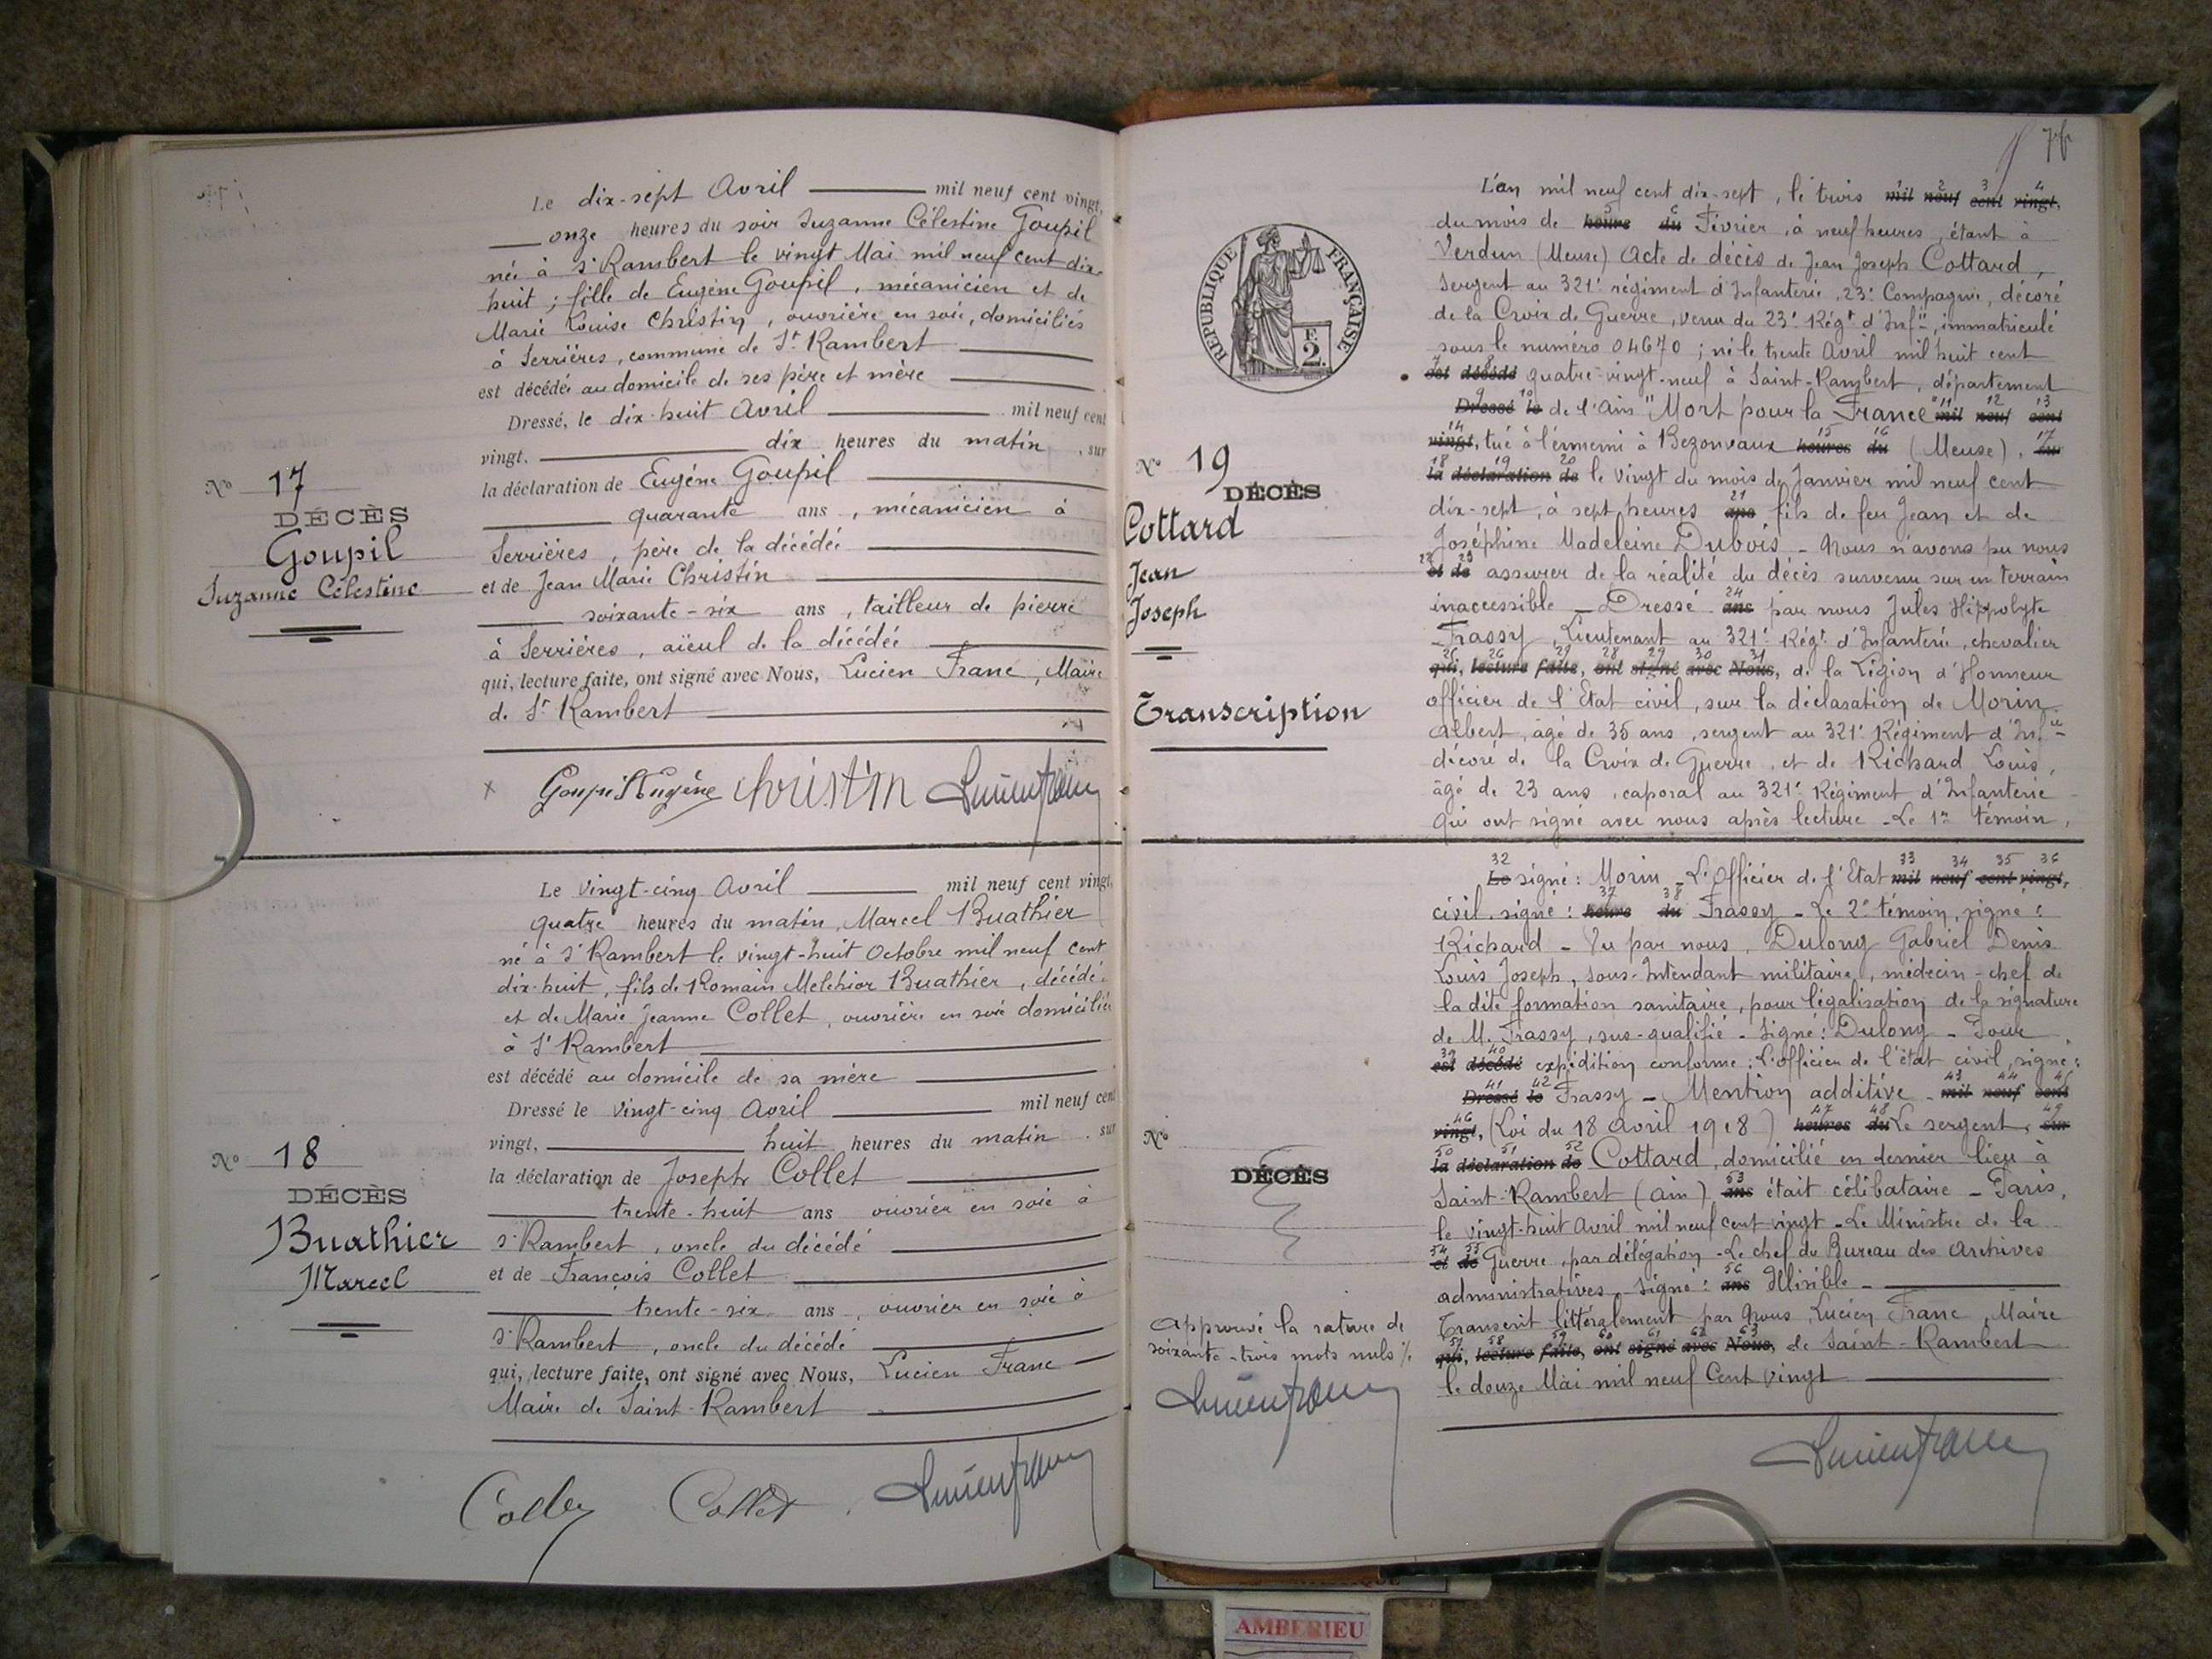 Le dix-sept Avril mil neuf cent vingt,
onze heures du soir Suzanne Célestine Goupil
née à St Rambert le vingt Mai mil neuf cent dix-
huit ; fille de Eugène Goupil, mécanicien et de
Marie Louise Christin, ouvrière en soie, domiciliés
à Serrières, commune de St Rambert
est décédée au domicile de ses père et mère
Dressé, le dix-huit Avril mil neuf cent
vingt, dix heures du matin, sur
la déclaration de Eugène Goupil
quarante ans, mécanicien à
Serrières, père de la décédée
et de Jean Marie Christin
soixante-six ans, tailleur de pierre
à Serrières, aïeul de la décédée
qui, lecture faite, ont signé avec Nous, Lucien Franc, Maire
de St Rambert
Nº 17
DÉCÈS
Goupil
Suzanne Célestine
Goupil Eugène Christin Lucien Franc
Le vingt-cinq Avril mil neuf cent vingt,
quatre heures du matin, Marcel Buathier
né à St Rambert le vingt-huit Octobre mil neuf cent
dix-huit, fils de Romain Melchior Buathier, décédé
et de Marie Jeanne Collet, ouvrière en soie domiciliée
à St Rambert
est décédé au domicile de sa mère
Dressé le vingt-cinq Avril mil neuf cent
vingt, huit heures du matin, sur
la déclaration de Joseph Collet
trente-huit ans ouvrier en soie à
St Rambert, oncle du décédé
et de François Collet
trente-six ans, ouvrier en soie à
St Rambert, oncle du décédé
qui, lecture faite, ont signé avec Nous, Lucien Franc
Maire de Saint-Rambert
Nº 18
DÉCÈS
Buathier
Marcel
Collet Lucien Franc
76
RÉPUBLIQUE FRANÇAISE
E
2.
Nº 19
DÉCÈS
Cottard
Jean
Joseph
Transcription
L'an mil neuf cent dix-sept, le trois mil neuf cent vingt,
du mois de heure du Février, à neuf heures, étant à
Verdun (Meuse) Acte de décès de Jean Joseph Cottard,
Sergent au 321e régiment d'Infanterie, 23e Compagnie, décoré
de la Croix de Guerre, venu du 23e Régt d'Infie, immatriculé
sous le numéro 04670 ; né le trente Avril mil huit cent
est décédé quatre-vingt-neuf à Saint-Rambert, département
Dressé le de l'Ain "Mort pour la France" mil neuf cent
vingt, tué à l'ennemi à Bezonvaux heures du (Meuse), sur
la déclaration de le vingt du mois de Janvier mil neuf cent
dix-sept, à sept heures ans fils de feu Jean et de
Joséphine Madeleine Dubois - Nous n'avons pu nous
et de assurer de la réalité du décès survenu sur un terrain
inaccessible - Dressé ans par nous Jules Hippolyte
Frassy, Lieutenant au 321e Régt d'Infanterie, chevalier
qui, lecture faite, ont signé avec Nous, de la Légion d'Honneur
officier de l'Etat civil, sur la déclaration de Morin
Albert, âgé de 35 ans, sergent au 321e Régiment d'Infie
décoré de la Croix de Guerre, et de Richard Louis,
âgé de 23 ans, caporal au 321e Régiment d'Infanterie
qui ont signé avec nous après lecture - Le 1er témoin,
Le signé : Morin - L'Officier de l'Etat mil neuf cent vingt,
civil, signé : heure du Frassy - Le 2e témoin, signé :
Richard - Vu par nous, Dulong Gabriel Denis
Louis Joseph, sous-Intendant militaire, médecin-chef de
la dite formation sanitaire, pour légalisation de la signature
de M. Frassy, sus-qualifié - signé : Dulong - Pour
est décédé expédition conforme : l'officier de l'état civil, signé :
Dressé le Frassy - Mention additive - mil neuf cent
vingt, (Loi du 18 Avril 1918) heures du Le sergent, sur
la déclaration de Cottard, domicilié en dernier lieu à
Saint-Rambert (Ain) ans était célibataire - Paris,
le vingt-huit Avril mil neuf cent vingt - Le Ministre de la
et de Guerre, par délégation - Le chef du Bureau des Archives
administratives - signé : ans Illisible -
Transcrit littéralement par Nous, Lucien Franc, Maire
qui, lecture faite, ont signé avec Nous, de Saint-Rambert
le douze Mai mil neuf cent vingt
Nº
DÉCÈS
Approuvé la rature de
soixante-trois mots nuls %
Lucien Franc
Lucien Franc
AMBERIEU